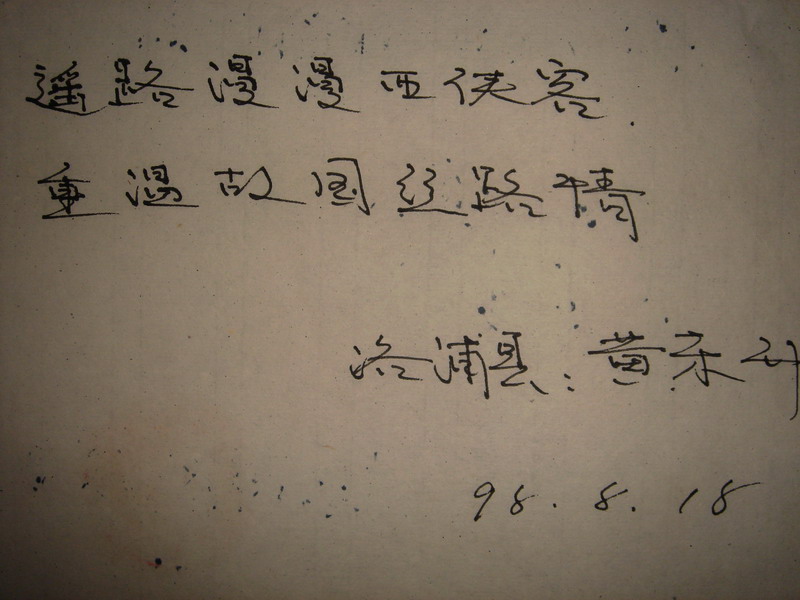 遥路漫漫西侠客.
重温故国丝路情
洛浦县:黄
98.8.18